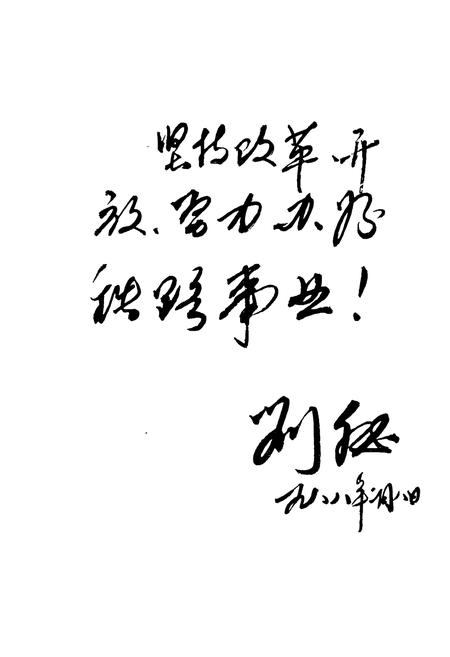 坚持改革、开
放、努力办好
铁路事业！
刘
一九八八年二月八日